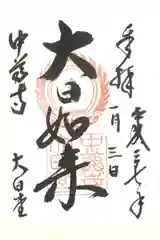 奉拝
平成二十七年
一月三日
大日如来
中尊寺
大日堂